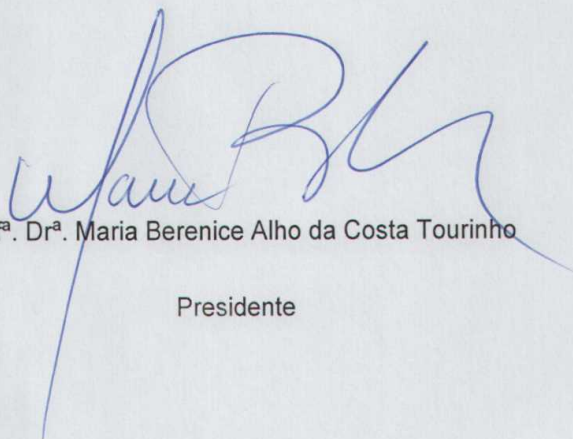 ª. Drª. Maria Berenice Alho da Costa Tourinho
Presidente